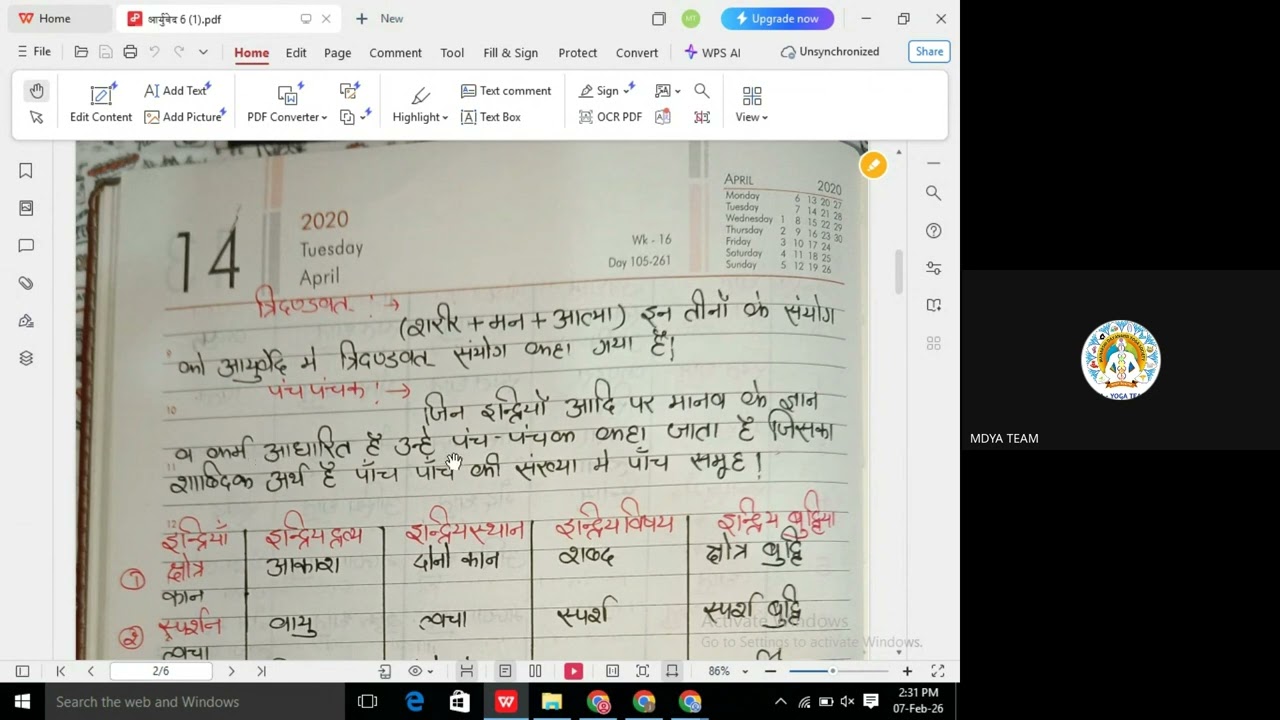 Home
आर्युबेद 6 (1).pdf
New
MT
Upgrade now
File
Home Edit Page Comment Tool Fill & Sign Protect Convert WPS AI
Unsynchronized
Share
Edit Content
Add Text
Add Picture
PDF Converter
Highlight
Text comment
Text Box
Sign
OCR PDF
View
14
2020
Tuesday
April
Wk - 16
Day 105-261
APRIL 2020
Monday 6 13 20 27
Tuesday 7 14 21 28
Wednesday 1 8 15 22 29
Thursday 2 9 16 23 30
Friday 3 10 17 24
Saturday 4 11 18 25
Sunday 5 12 19 26
त्रिदण्डवत !→
(शरीर + मन + आत्मा) इन तीनों के संयोग
को आयुर्वेद मे त्रिदण्डवत संयोग कहा गया है!
पंचपंचक !→
10
जिन इन्द्रियों आदि पर मानव के ज्ञान
व कर्म आधारित है उन्हे पंच-पंचक कहा जाता है जिसका
11
शाब्दिक अर्थ है पाँच पाँच की संख्या मे पाँच समूह!
12
इन्द्रियाँ इन्द्रिय द्रव्य इन्द्रियस्थान इन्द्रिय विषय इन्द्रिय बुद्धिया
① क्षोत्र आकाश दोनो कान शब्द क्षोत्र बुद्धि
कान
② स्पर्शन वायु त्वचा स्पर्श स्पर्श बुद्धि
त्वचा
Activate Windows
Go to Settings to activate Windows.
2/6
86%
Search the web and Windows
2:31 PM
07-Feb-26
- YOGA TEA
MDYA TEAM